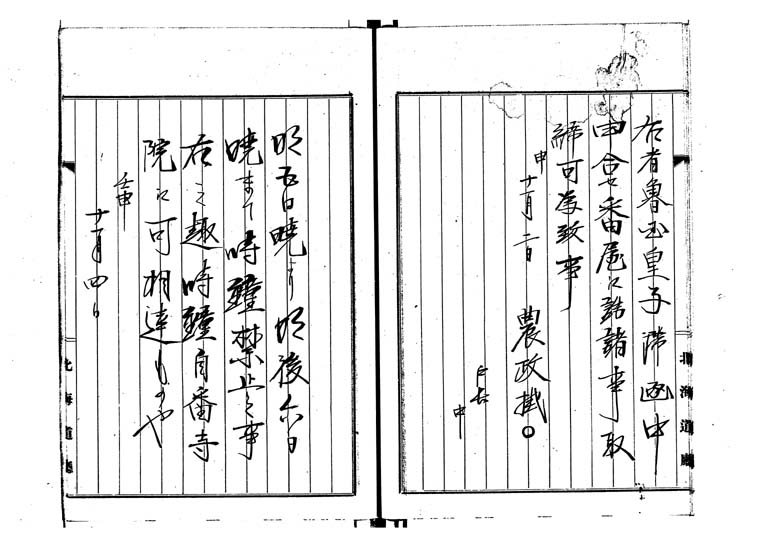 右者魯西皇子滞函中
申合セ番屋江詰諸事取
締可為致事
申十一月二日 農政掛○
戸長
中
北海道廳
明五日暁ゟ明後六日
暁まて時鐘禁止之事
右之趣時鐘自番寺
院江可相達ものや
壬申
十一月四日
北海道廳